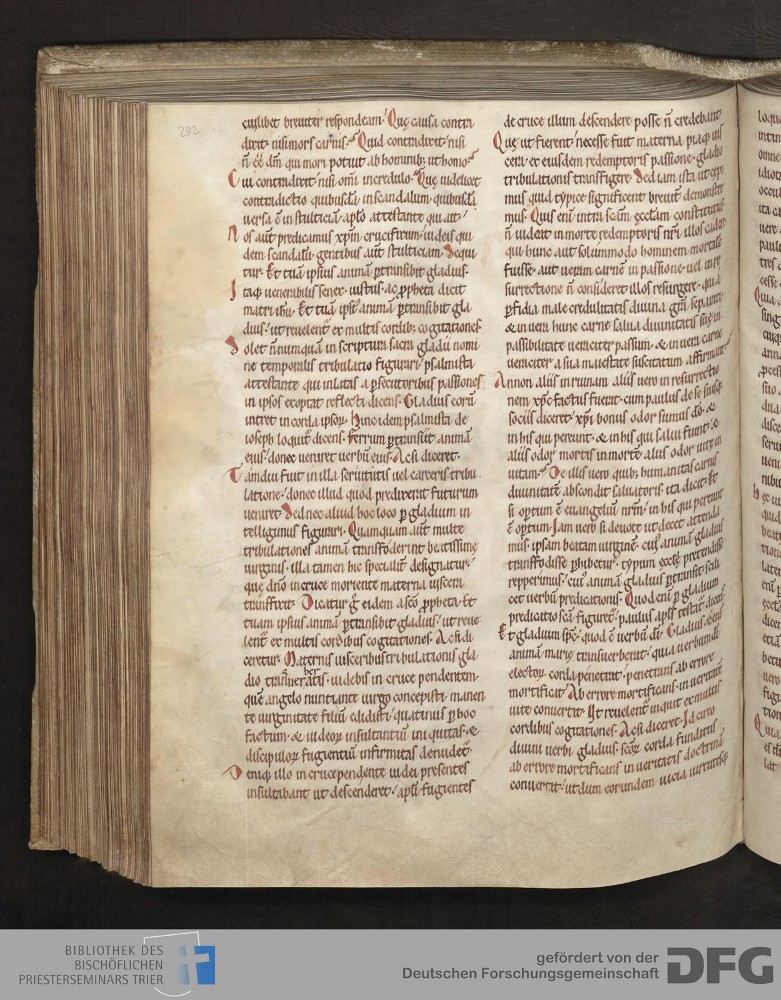 292
cuilibet breuiter respondeam. Quę causa contra
dixit. nisi mors carnis. Quid contradixit. nisi
n̄ eē dn̄m qui mori potuit ab hominib; ut homo.
Cui contradixit. nisi om̄i incredulo. Quę uidelicet
contradictio quibusdā in scandalum. quibusdā
uersa ē in stulticiā. apl̄o attestante qui ait.
Nos aūt predicamus xp̄m crucifixum. iudeis qui
dem scandalū. gentibus aūt stulticiam. Sequi
tur. Et tuā ipsius animā ꝑtransibit gladius.
Itaq; uenerabilis senex. iustus ac ꝓpheta dicit
matri ih̄u. Et tuā ipsi animā ꝑtransibit gla
dius. ut reuelent̄ ex multis cordib; cogitationes.
Solet n̄nunquā in scriptura sacra gladii nomi
ne temporalis tribulatio figurari. psalmista
attestante qui inlatas a ꝑsecutoribus passiones
in ipsos exoptat reflecti dicens. Gladius eorū
intret in corda ipsoꝝ. Hinc idem psalmista de
ioseph loquit̄ dicens. Ferrum ꝑtransiit animā
eius. donec ueniret uerbū eius. Ac si diceret.
Tamdiu fuit in illa seruitutis uel carceris tribu
latione. donec illud quod predixerat futurum
ueniret. Sed nec aliud hoc loco ꝑ gladium in
tellegimus figurari. Quamquam aūt multe
tribulationes animā transfoderint beatissimę
uirginis. illa tamen hic specialit̄ designatur.
que dn̄o in cruce moriente materna uiscera
transfixit. Dicatur g̊ eidem a sc̄o ꝓpheta. Et
tuam ipsius animā ꝑtransibit gladius. ut reue
lent̄ ex multis cordibus cogitationes. Ac si di
ceretur. Maternis uisceribus tribulationis gla
dio transueratis. uidebis in cruce pendentem.
ber
quē angelo nuntiante uirgo concepisti. manen
te uirginitate filiū edidisti. quatinus ꝑ hoc
factum. & iudeoꝝ insultantiū iniquitas. &
discipuloꝝ fugientiū infirmitas denudet̄.
Deniq; illo in cruce pendente iudei presentes
insultabant ut descenderet. apl̄i fugientes
de cruce illum descendere posse n̄ credebant.
Quę ut fierent. necesse fuit materna piaq; uis
cera. ex eiusdem redemptoris passione. gladio
tribulationis transfigere. Sed iam ista ut expi
mus quid typice significent breuit̄ demonstre
mus. Quis eni intra sc̄am ęcclām constitutus
n̄ uideat in morte redemptoris nr̄i illos cadere
qui hunc aut solummodo hominem mortalē
fuisse. aut uerum carnē in passione. uel in re
surrectione n̄ consideret illos resurgere. qui a
ꝑfidia male credulitatis diuina gr̄a separati.
& in uera hunc carne salua diuinitatis suę in
passibilitate ueraciter passum. & in uera carne
ueraciter a sua maiestate suscitatum affirmant.
Annon aliis in ruinam aliis uero in resurrectio
nem xp̄c factus fuerat. cum paulus de se suisq;
sociis diceret. xp̄i bonus odor sumus dō. &
in his qui pereunt. & in his qui salui fiunt. &
aliis odor mortis in mortē. aliis odor uite in
uitam. De illis uero quib; humanitas carnis
diuinitatē abscondit saluatoris. ita dicit. Et
si optum ē euangeliū nr̄m. in his qui pereunt
ē optum. Iam uero si deuote ut decet attenda
mus. ipsam beatam uirginē. cui animā gladius
transfodisse ꝑhibetur. typum ęcclę pretendisse
repperimus. cui animā gladius ꝑtransiit. scili
cet uerbū predicationis. Quod eni ꝑ gladium
predicatio sc̄a figuret̄. paulus apl̄s testat̄ dicens.
Et gladium sp̄c. quod ē uerbū dī. Gladius etenī
animā marię transuerberat. quia uerbum dī
electoꝝ corda penetrat. penetrans ab errore
mortificat. Ab errore mortificans. in ueritate
uite conuertit. Ut reuelent̄ inquit ex multis
cordibus cogitationes. Ac si diceret. Id circo
diuini uerbi gladius. sc̄oꝝ corda funditus
ab errore mortificans in ueritatis doctrinā
conuertit. ut dum eorundem uicia uirtutesq;
BIBLIOTHEK DES
BISCHÖFLICHEN
PRIESTERSEMINARS TRIER
gefördert von der
Deutschen Forschungsgemeinschaft
DFG